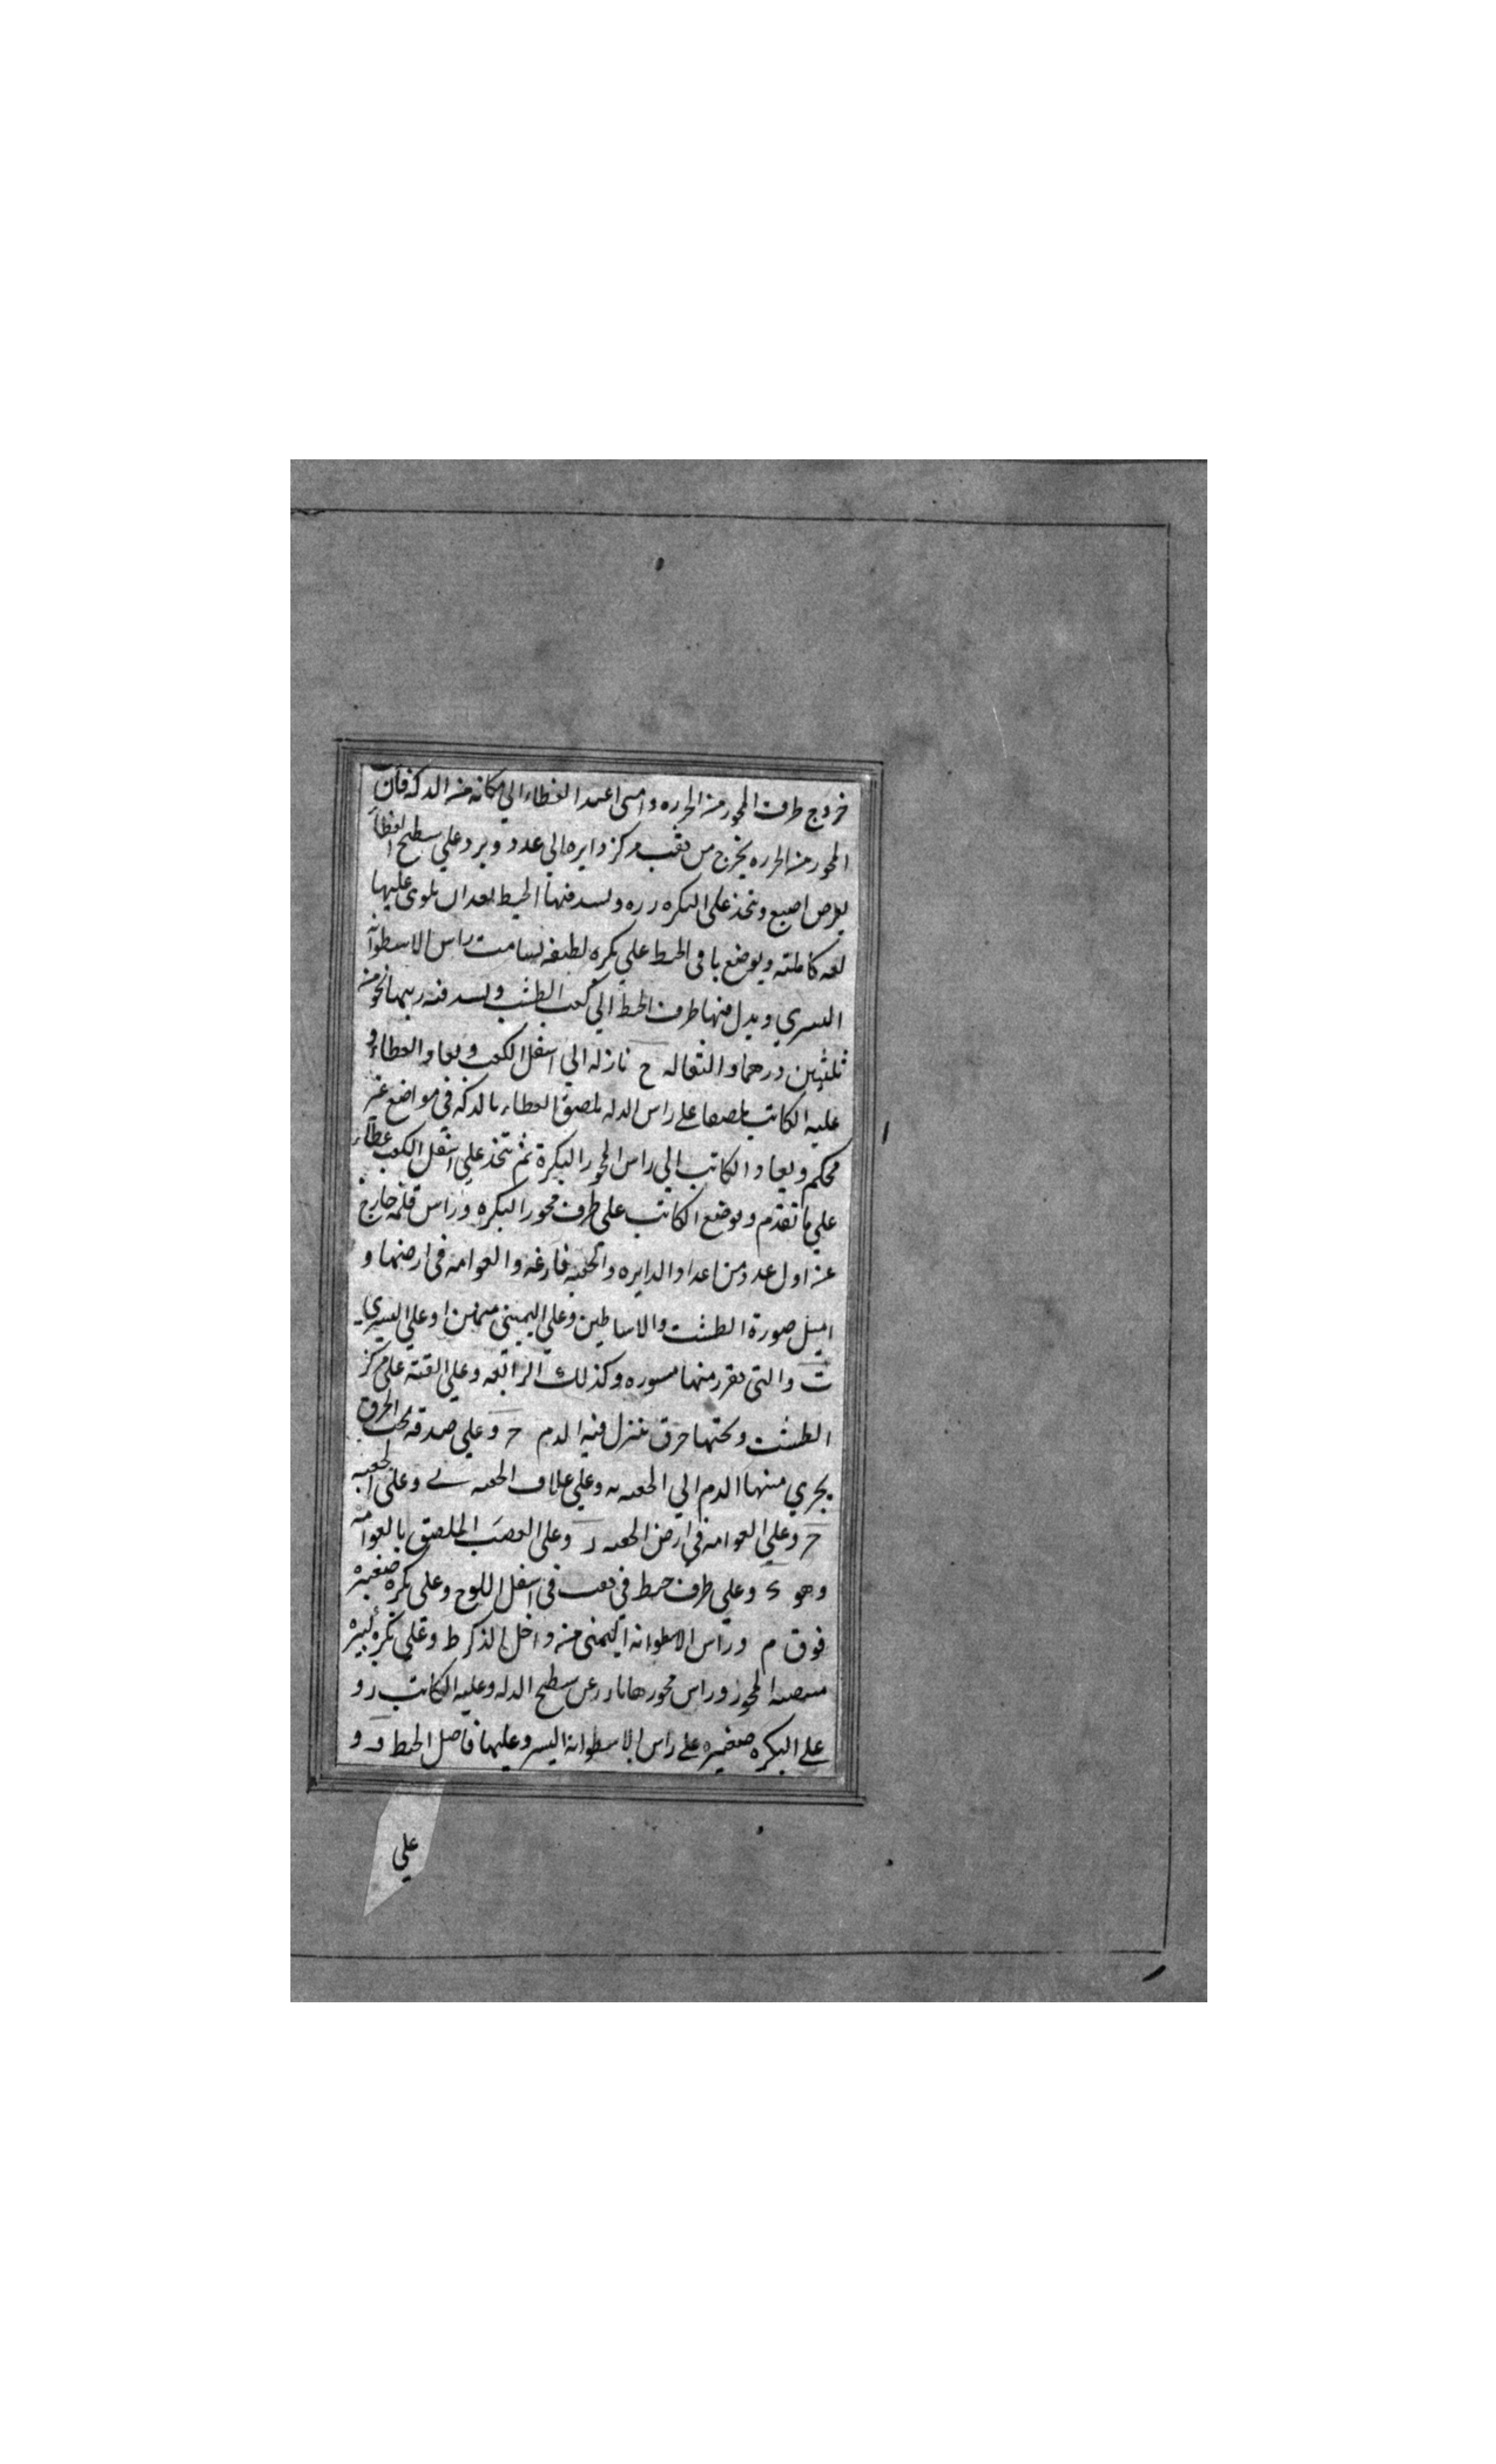 خروج طرف المحور من الحرره وامسى اعمد الغطاء الي مكانه من الدكة فان
المحور من الحرره يخرج من ثقب مركز دايره الي عدد ويرد علي سطح الغطاء
بعرض اصبع ويتخذ على البكره رره ويسد فيها الخيط بعد ان يلوى عليها
لفه كاملته ويوضع باقى الخيط علي بكره لطيفه لسامت راس الاسطوانه
اليسري ويدل منها طرف الخيط الي كعب الطشت ويسد فيه ريبها نحو من
ثلثين درهما والثقاله ح نازله الي اسفل الكعب ويعاد الغطاء و
عليه الكاتب ملصقا على راس الدله يلصق الغطاء بالدكة في مواضع غير
محكم ويعاد الكاتب الي راس المحور البكرة ثم يتخذ علي اسفل الكعب غطاء
علي ما تقدم ويوضع الكاتب على طرف محور البكره وراس قلمه خارج
عن اول عدد من اعداد الدايره والحقبه فارغه والعوامه في ارضها و
امثل صورة الطشت والاساطين وعلي اليمينى مما من ا وعلي اليسري
ت والتى تقرر منها مسوره وكذلك الرابعه وعلي القبه على مركز
الطشت وتحتها خرق ينزل فيه الدم ح وعلي صدقه تحت الخرق
يجري منها الدم الي الحقبه ه وعلي غلاف الحقبه ے وعلى الحقبه
ح وعلي العوامه في ارض الحقبه د وعلى القصب الملصق بالعوامه
وهو ء وعلي طرف خيط في ثقب في اسفل اللوح وعلى بكره صغيره
فوق م وراس الاسطوانه اليمنى من داخل الذكر ط وعلي بكره كبيره
منصبه المحور وراس محورها نادر عن سطح الدله وعليه الكاتب ر و
على البكره صغيره على راس الاسطوانه اليسر وعليها فاصل الخيط و و
علي